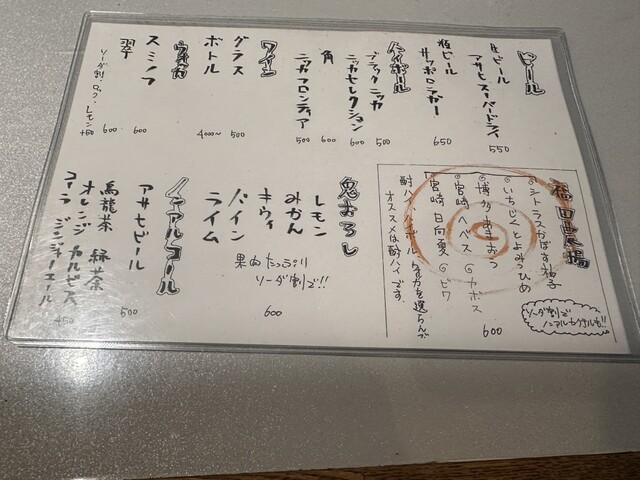 ビール
生ビール
アサヒスーパードライ
550
瓶ビール
サッポロラガー
650
ハイボール
ブラックニッカ
500
ニッカセレクション
600
角
600
ニッカフロンティア
500
ワイン
グラス
500
ボトル
4000〜
ウォッカ
スミノフ
600
翠
600
ソーダ割・ロック・レモン
+50
福田農場
◎シトラスかぼす柚子
◎いちじくとよみつひめ
◎博多あまおう
◎宮崎ヘベス ◎カボス
◎宮崎日向夏 ◎ビワ
600
酎ハイ
オススメは酎ハイです。
ソーダ割で
ノンアルカクテルも!!
鬼おろし
レモン
みかん
キウイ
パイン
ライム
果肉たっぷり
ソーダ割で!!
600
ノンアルコール
アサヒビール
500
烏龍茶 緑茶
オレンジ カルピス
コーラ ジンジャーエール
450